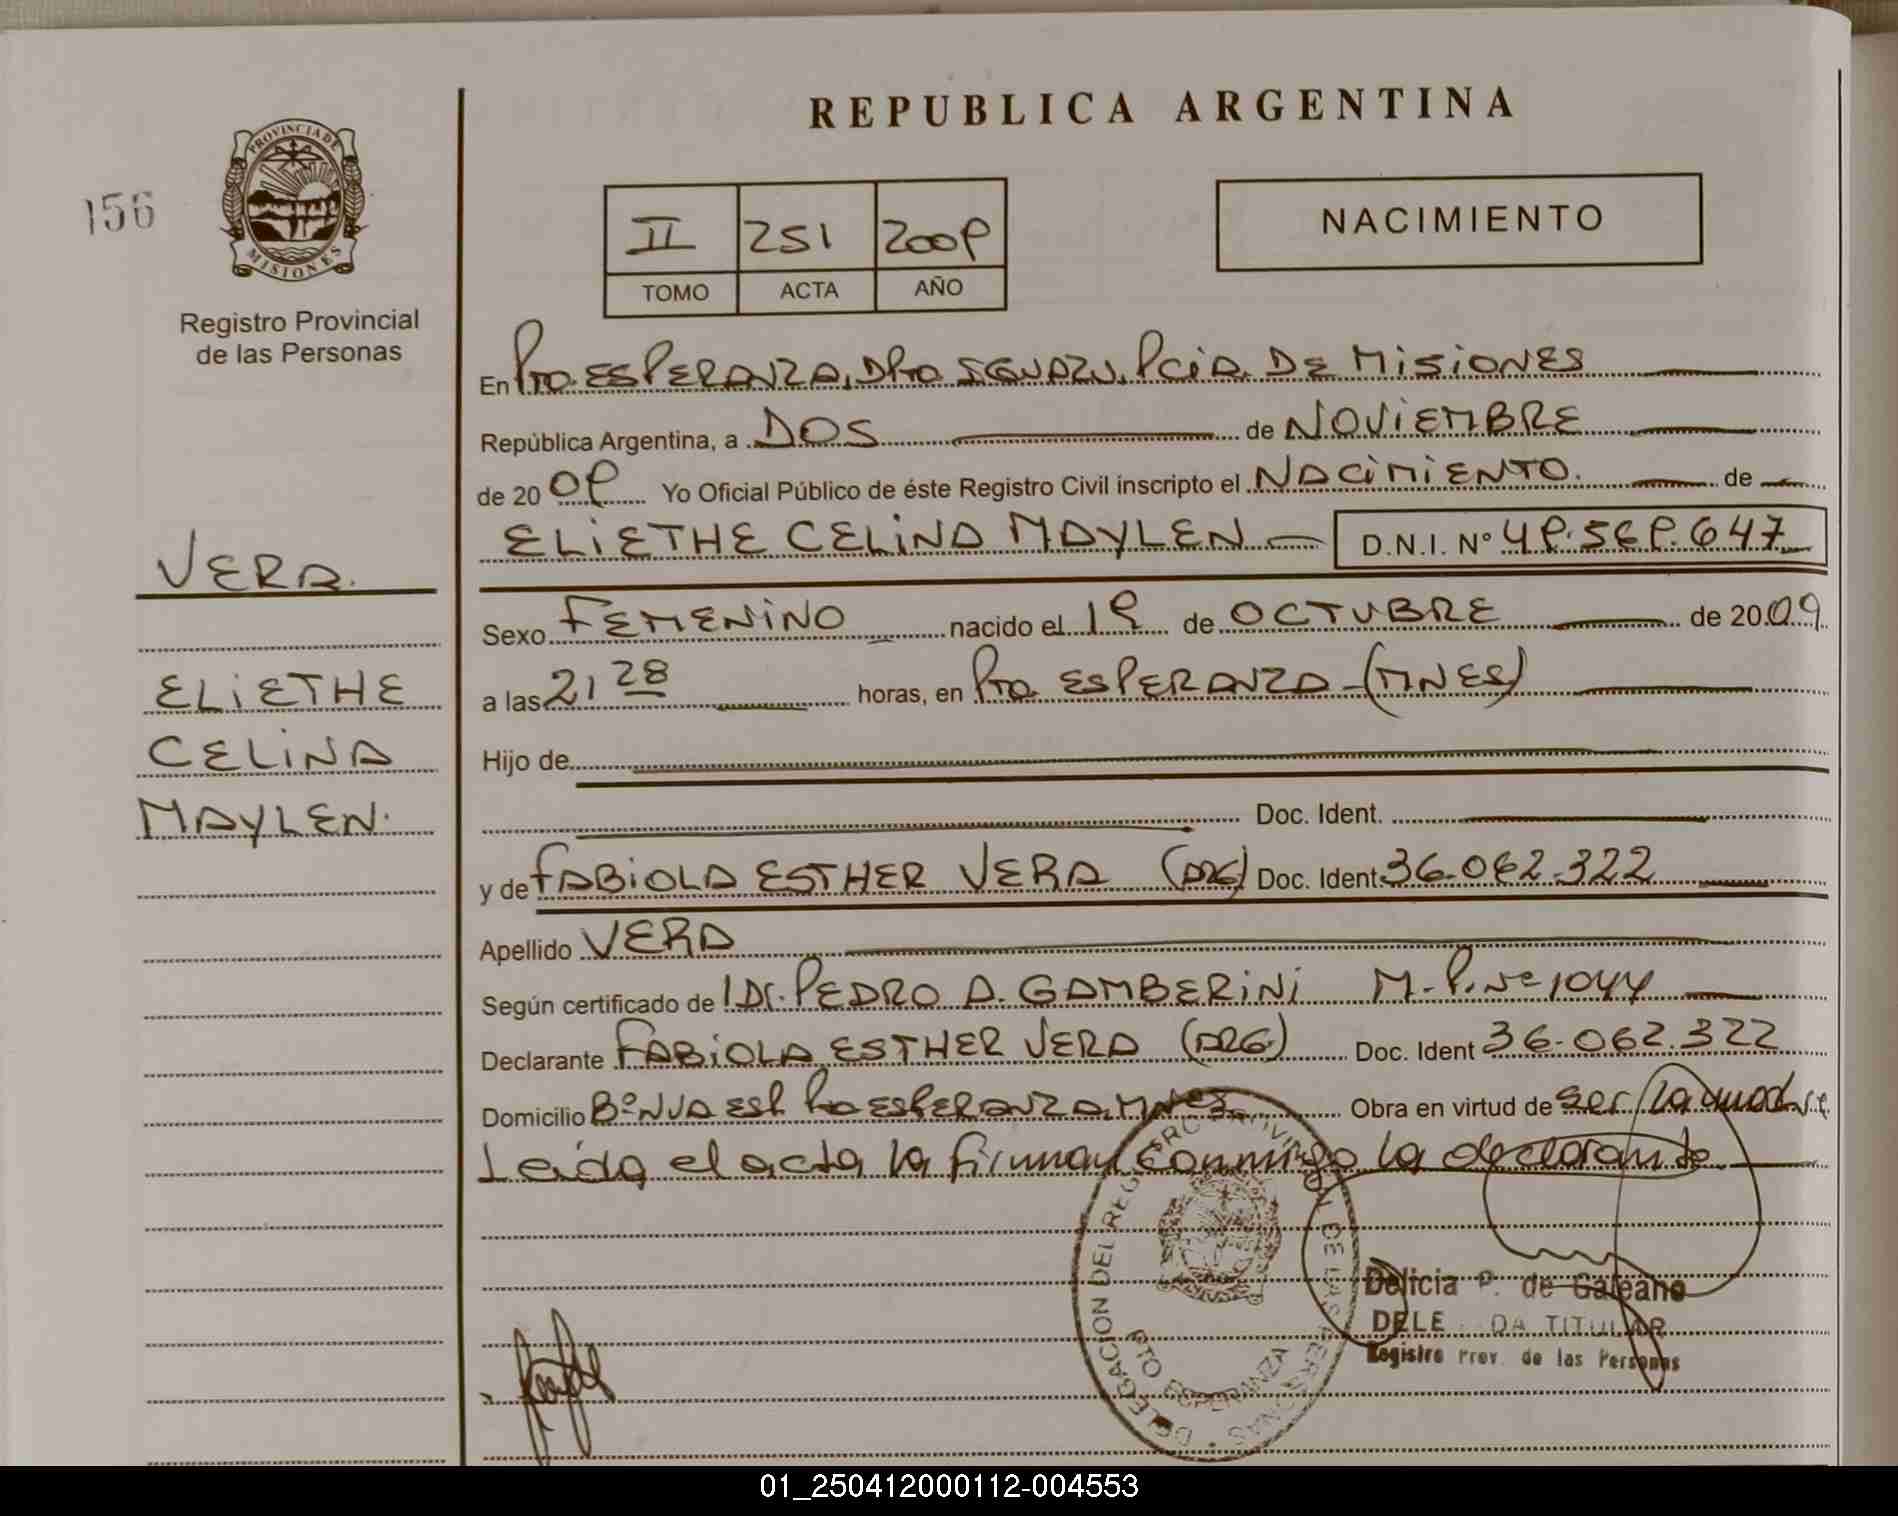 REPUBLICA ARGENTINA
156
PROVINCIA DE
MISIONES
Registro Provincial
de las Personas
II 251 2009
TOMO ACTA AÑO
NACIMIENTO
En Pto. ESPERANZA, Dpto IGUAZU, PCIA. DE MISIONES
República Argentina, a DOS de NOVIEMBRE
de 20 09 Yo Oficial Público de éste Registro Civil inscripto el NACIMIENTO. de
ELIETHE CELINA MAYLEN D.N.I. Nº 49.569.647
VERA.
Sexo FEMENINO nacido el 19 de OCTUBRE de 20 09
ELIETHE
a las 21 28 horas, en Pto. ESPERANZA - (MNES)
CELINA
Hijo de
MAYLEN.
Doc. Ident.
y de FABIOLA ESTHER VERA (ARG) Doc. Ident 36.062.322
Apellido VERA
Según certificado de Dr. PEDRO A. GAMBERINI M.P. Nº 1044
Declarante FABIOLA ESTHER VERA (ARG) Doc. Ident 36.062.322
Domicilio Bº NVA ESP. Pto ESPERANZA, MNES Obra en virtud de ser la madre
Leida el acta la firman conmigo la declarante
DELEGACION DEL REGISTRO PROVINCIAL DE LAS PERSONAS
PTO ESPERANZA
Delicia P. de Galeano
DELE DA TITULAR
Registro Prov. de las Personas
01_250412000112-004553